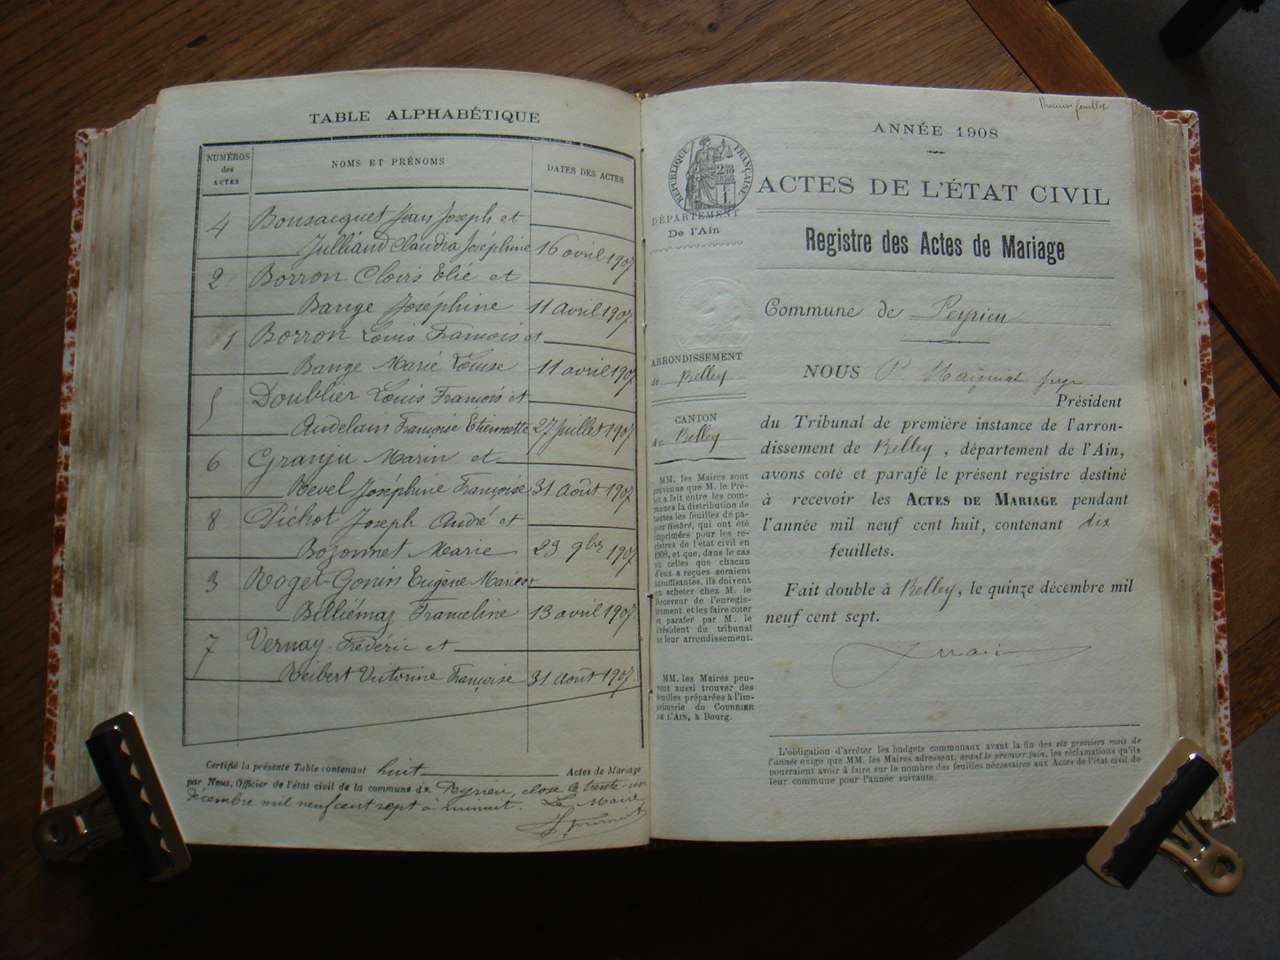 TABLE ALPHABÉTIQUE
NUMÉROS
des
ACTES
NOMS ET PRÉNOMS
DATES DES ACTES
4 Bonsacquet Jean Joseph et
Julliand Claudia Joséphine 16 avril 1907
2 Borron Clovis Elie et
Bange Joséphine 11 avril 1907
1 Borron Louis François et
Bange Marie Louise 11 avril 1907
5 Doublier Louis François et
Audelan Françoise Etiennette 27 juillet 1907
6 Granju Marin et
Revel Joséphine Françoise 31 août 1907
8 Pichot Joseph André et
Bozonnet Marie 23 9bre 1907
3 Roget-Gonin Eugène Marius et
Billiémaz Franceline 13 avril 1907
7 Vernay Frédéric et
Reibert Victorine Françoise 31 août 1907
Certifié la présente Table contenant huit Actes de Mariage
par Nous, Officier de l'état civil de la commune de Peyrieu, close le trente-un
décembre mil neuf cent sept à minuit. Le Maire
ANNÉE 1908
RÉPUBLIQUE FRANÇAISE
ACTES DE L'ÉTAT CIVIL
DÉPARTEMENT
De l'Ain
Registre des Actes de Mariage
Commune de Peyrieu
ARRONDISSEMENT
de Belley
CANTON
de Belley
MM. les Maires sont
prévenus que M. le Pré-
fet a fait entre les com-
munes la distribution de
toutes les feuilles de pa-
pier timbré, qui ont été
imprimées pour les re-
gistres de l'état civil en
1908, et que, dans le cas
où celles que chacun
d'eux a reçues seraient
insuffisantes, ils doivent
en acheter chez M. le
Receveur de l'enregis-
trement et les faire coter
et parafer par M. le
Président du tribunal
de leur arrondissement.
MM. les Maires peu-
vent aussi trouver des
feuilles préparées à l'im-
primerie du COURRIER
DE L'AIN, à Bourg.
NOUS P.
Président
du Tribunal de première instance de l'arron-
dissement de Belley, département de l'Ain,
avons coté et parafé le présent registre destiné
à recevoir les ACTES DE MARIAGE pendant
l'année mil neuf cent huit, contenant dix
feuillets.
Fait double à Belley, le quinze décembre mil
neuf cent sept.
L'obligation d'arrêter les budgets communaux avant la fin des six premiers mois de
l'année exige que MM. les Maires adressent, avant le premier juin, les réclamations qu'ils
pourraient avoir à faire sur le nombre des feuilles nécessaires aux Actes de l'état civil de
leur commune pour l'année suivante.